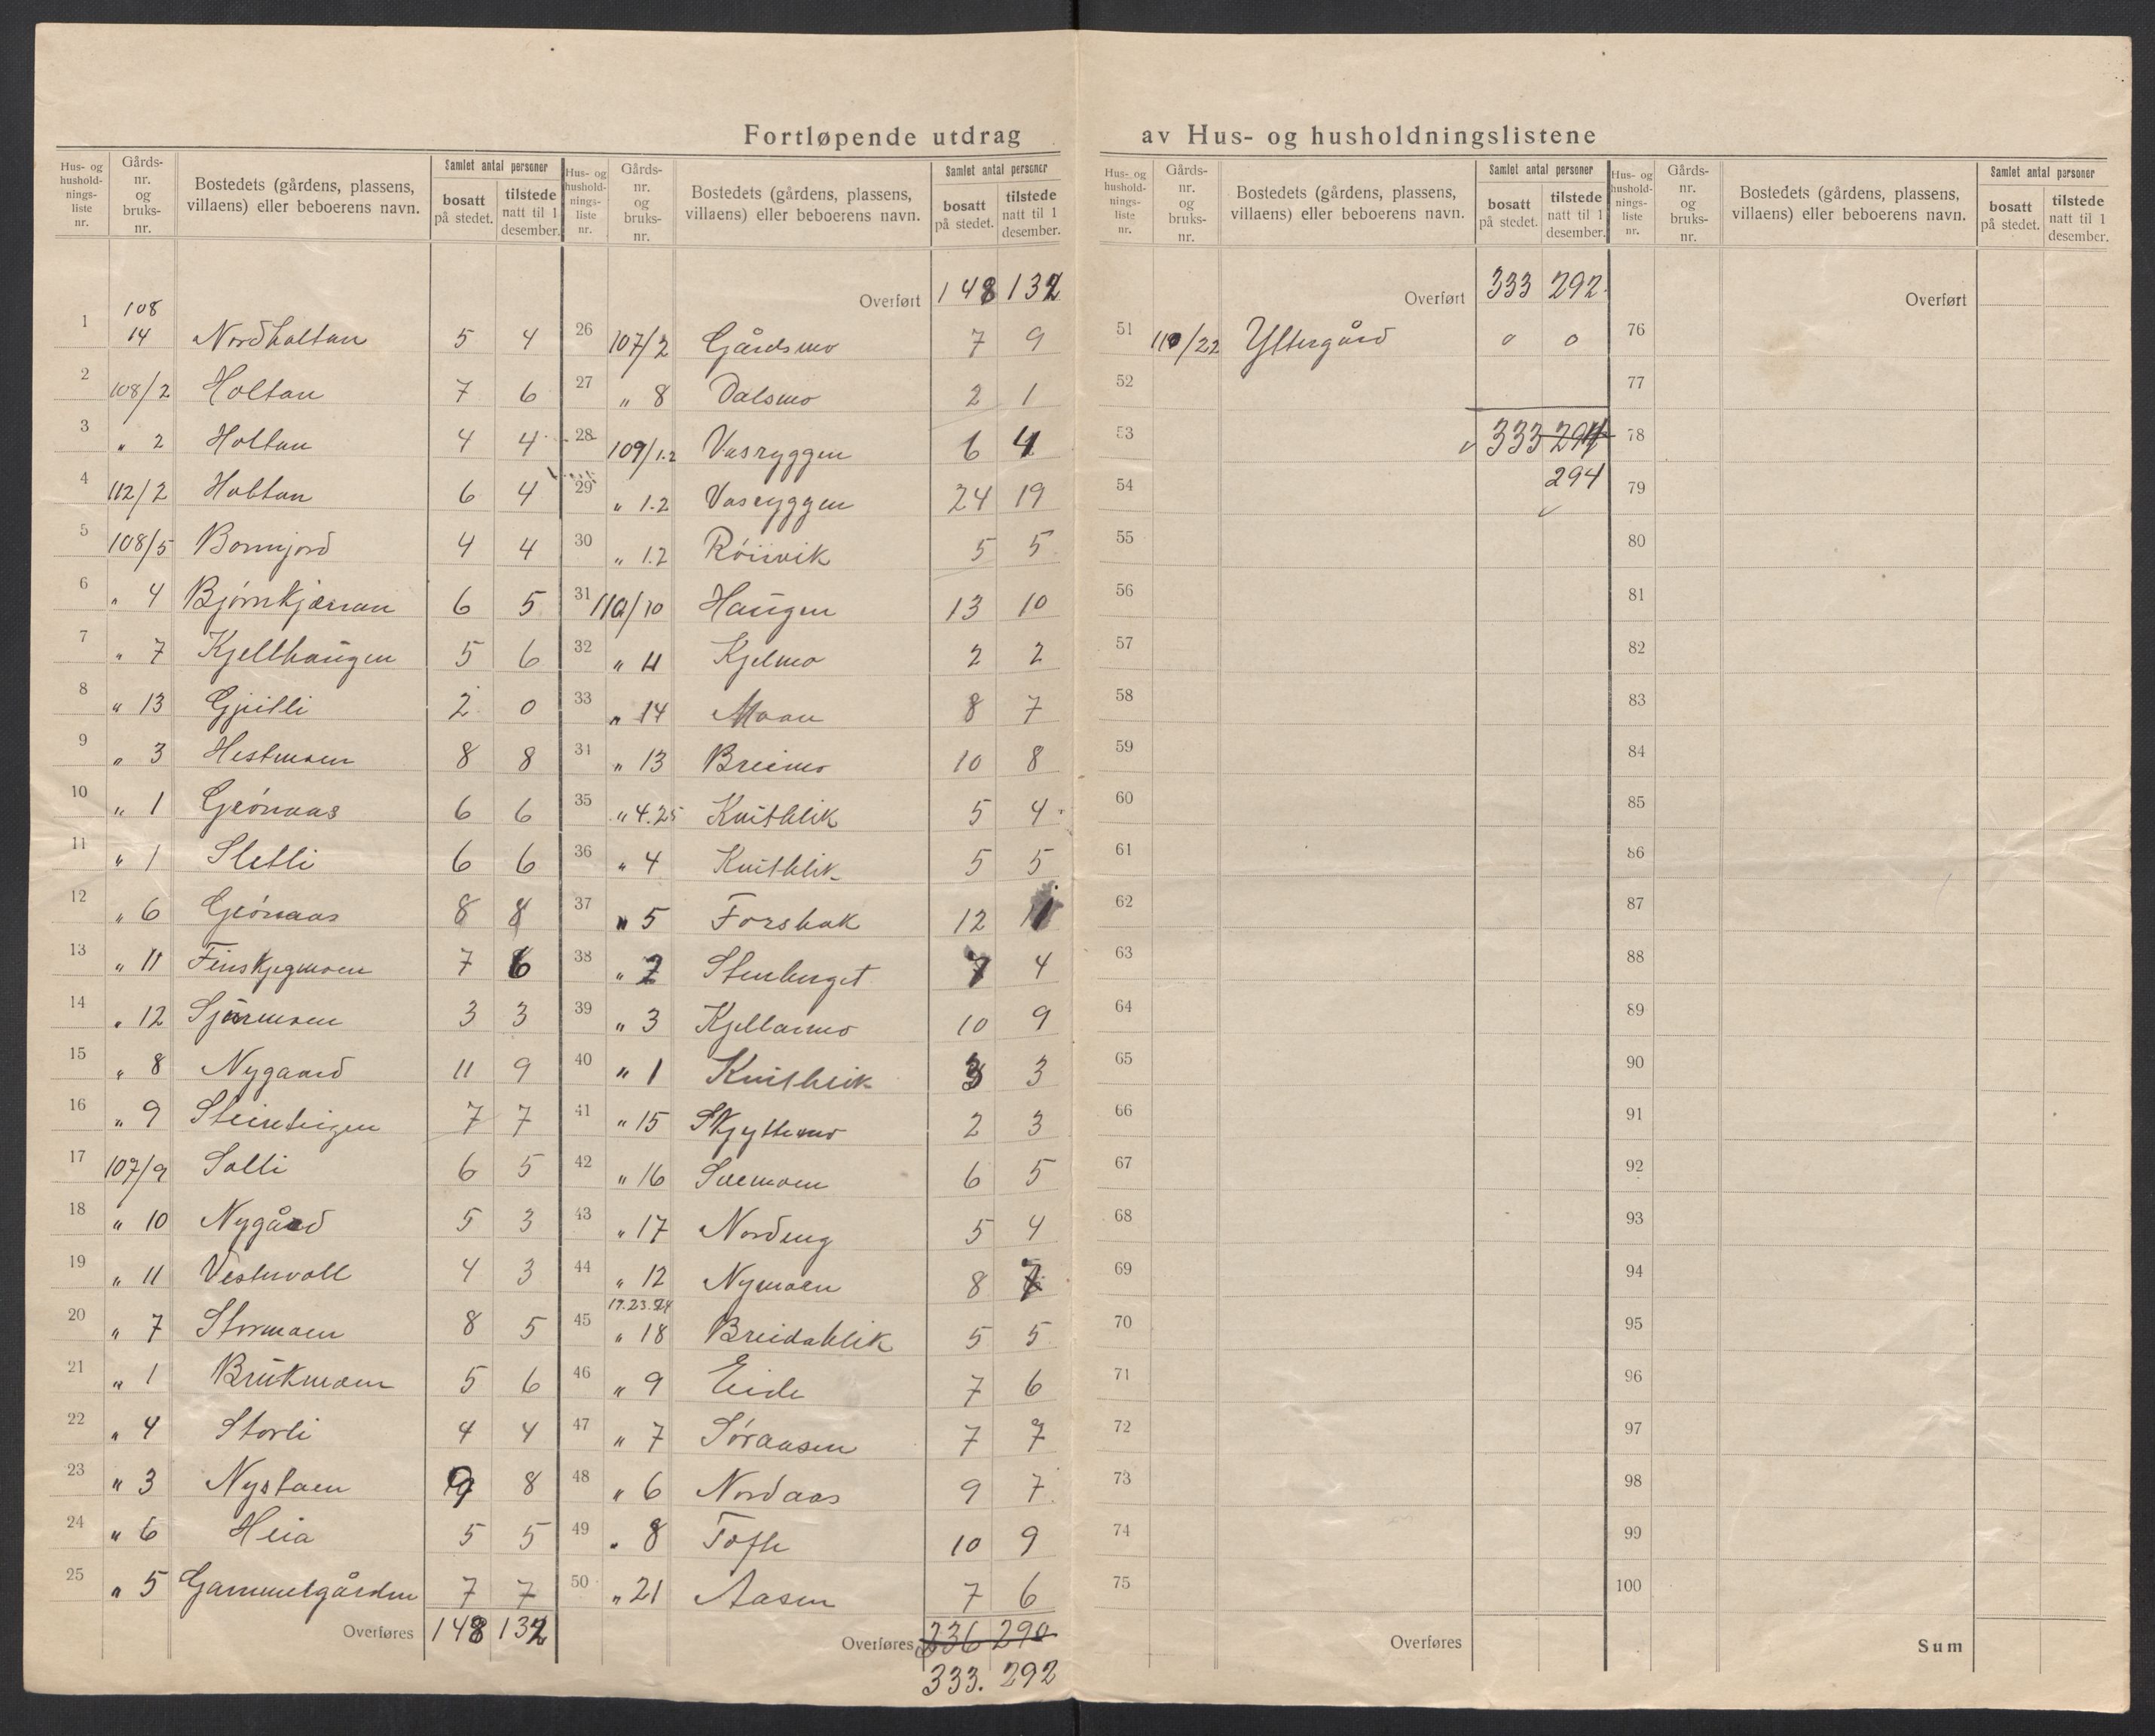 Fortløpende utdrag av Hus- og husholdningslistene
Hus- og husholdnings-liste nr. | Gårds-nr. og bruks-nr. | Bostedets (gårdens, plassens, villaens) eller beboerens navn. | Samlet antal personer | bosatt på stedet. | tilstede natt til 1 desember.
1 108 14 Nordholtan 5 4
2 108/2 Holtan 7 6
3 " 2 Holtan 4 4
4 112/2 Holtan 6 4
5 108/5 Bonnjord 4 4
6 " 4 Bjørnkjærran 6 5
7 " 7 Kjellhaugen 5 6
8 " 13 2 0
9 " 3 Hestmoen 8 8
10 " 1 Grónaas 6 6
11 " 1 Sletli 6 6
12 " 6 Grónaas 8 8
13 " 11 Finskjegmoen 7 6
14 " 12 3 3
15 " 8 Nygaard 11 9
16 " 9 Steinteigen 7 7
17 107/9 Solli 6 5
18 " 10 Nygård 5 3
19 " 11 Vestervoll 4 3
20 " 7 Stormoen 8 5
21 " 1 Brukmoen 5 6
22 " 4 Storli 4 4
23 " 3 Nystaen 9 8
24 " 6 Heia 5 5
25 " 5 Gammelgården 7 7
Overføres 148 132
Hus- og husholdnings-liste nr. | Gårds-nr. og bruks-nr. | Bostedets (gårdens, plassens, villaens) eller beboerens navn. | Samlet antal personer | bosatt på stedet. | tilstede natt til 1 desember.
Overført 148 132
26 107/2 Gårdsmo 7 9
27 " 8 Dalsmo 2 1
28 109/1.2 Vasryggen 6 4
29 " 1.2 Vasryggen 24 19
30 " 1.2 5 5
31 110/10 Haugen 13 10
32 " 11 Kjelmo 2 2
33 " 14 Moan 8 7
34 " 13 Breimo 10 8
35 " 4.25 Kvitblik 5 4
36 " 4 Kvitblik 5 5
37 " 5 Forsbak 12 11
38 " 2 Stenberget 7 4
39 " 3 Kjellarmo 10 9
40 " 1 Kvitblik 3 3
41 " 15 Skyttermo 2 3
42 " 16 Svemoen 6 5
43 " 17 Nordeng 5 4
44 " 12 Nymoen 8 7
19.23.24
45 " 18 Breidablik 5 5
46 " 9 Eide 7 6
47 " 7 Söraasen 7 7
48 " 6 Nordaas 9 7
49 " 8 Tofte 10 9
50 " 21 Aasen 7 6
Overføres 336 290
333. 292
Hus- og husholdnings-liste nr. | Gårds-nr. og bruks-nr. | Bostedets (gårdens, plassens, villaens) eller beboerens navn. | Samlet antal personer | bosatt på stedet. | tilstede natt til 1 desember.
Overført 333 292
51 110/22 Yttergård 0 0
52
53 333 294
54 294
55
56
57
58
59
60
61
62
63
64
65
66
67
68
69
70
71
72
73
74
75
Overføres
Hus- og husholdnings-liste nr. | Gårds-nr. og bruks-nr. | Bostedets (gårdens, plassens, villaens) eller beboerens navn. | Samlet antal personer | bosatt på stedet. | tilstede natt til 1 desember.
Overført
76
77
78
79
80
81
82
83
84
85
86
87
88
89
90
91
92
93
94
95
96
97
98
99
100
Sum